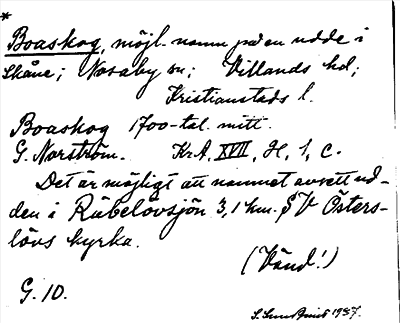 *
Boaskog, möjl. namn på en udde i
Skåne; Nosaby sn; Villands hd;
Kristianstads l.
Boaskog 1700-tal. mitt.
G. Norström. KrA, XVII, H, 1, c.
Det är möjligt att namnet avsett ud-
den i Råbelövsjön 3,1 km. SV Östers-
lövs kyrka.
(Vänd!)
G. 10.
1937.